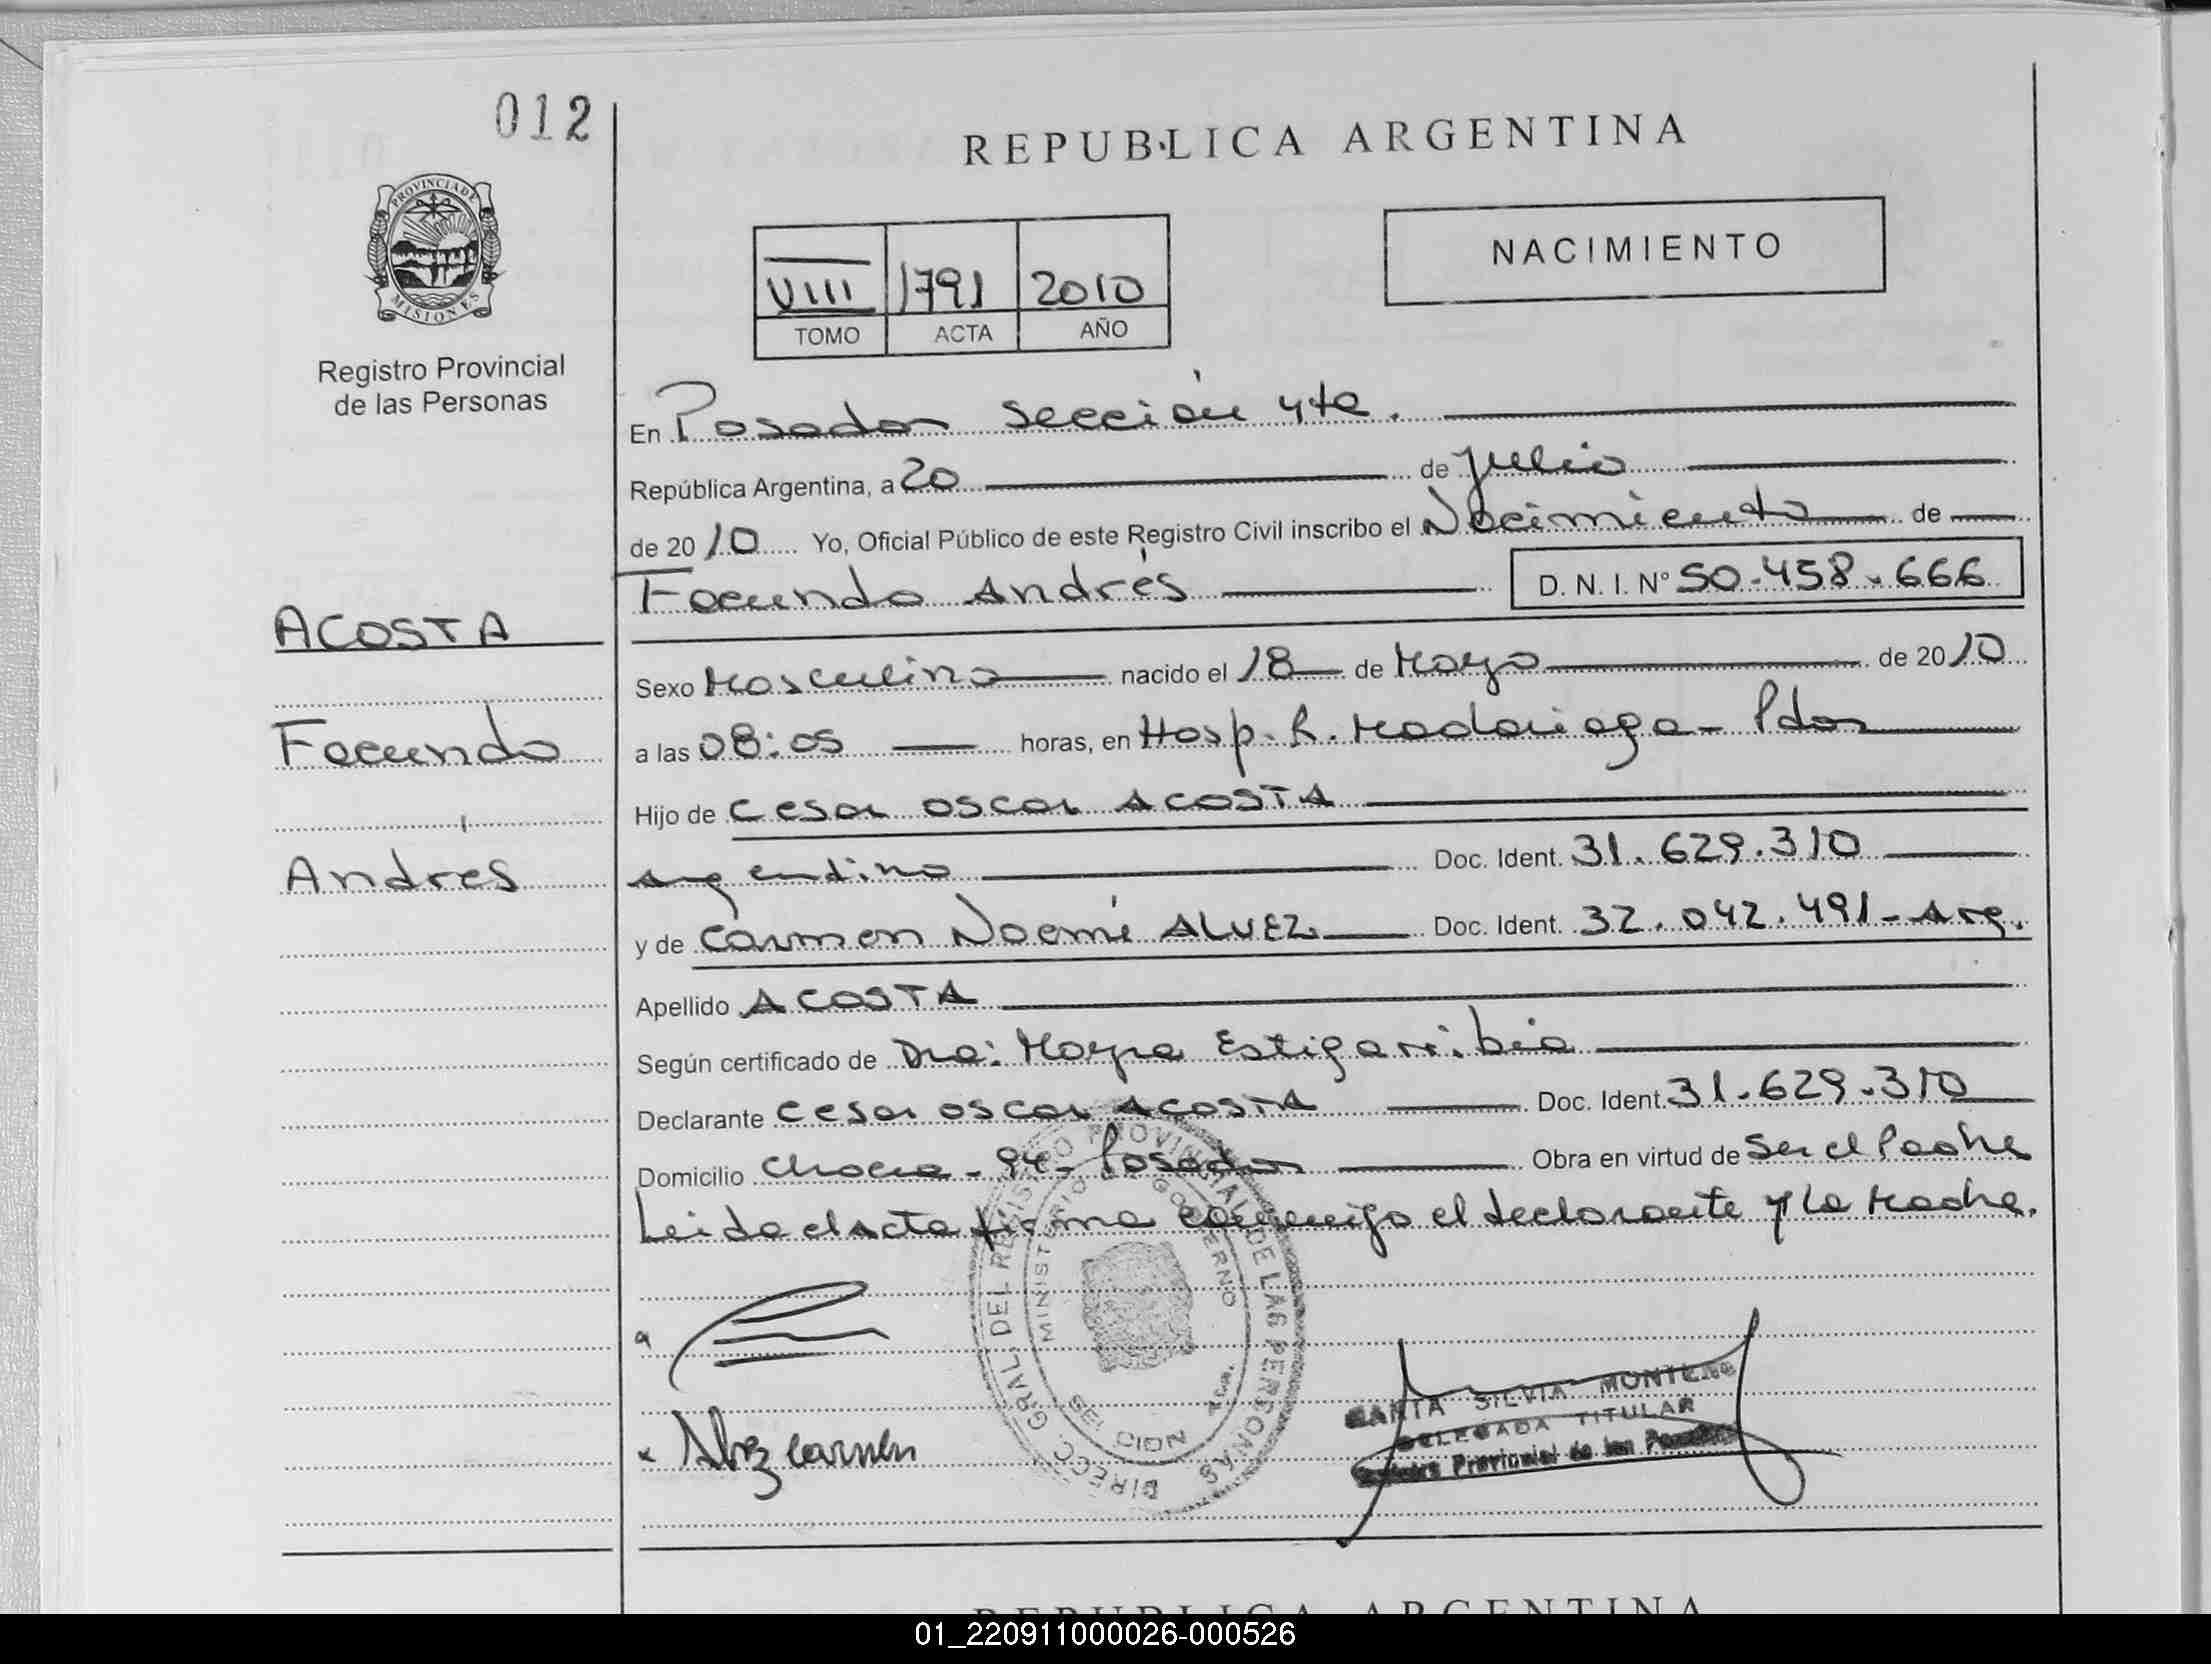 012
REPUBLICA ARGENTINA
PROVINCIA DE MISIONES
Registro Provincial
de las Personas
VIII 1791 2010
TOMO ACTA AÑO
NACIMIENTO
En Posadas Sección 4ta.
República Argentina, a 20 de Julio
de 2010 Yo, Oficial Público de este Registro Civil inscribo el Nacimiento de
Facundo Andrés D. N. I. Nº 50.458.666
ACOSTA
Facundo
Andrés
Sexo Masculino nacido el 18 de Mayo de 2010
a las 08:05 horas, en Hosp. R. Madariaga - Pdas
Hijo de Cesar Oscar ACOSTA
Argentino Doc. Ident. 31.629.310
y de Carmen Noemí ALVEZ Doc. Ident. 32.042.491 - Arg.
Apellido ACOSTA
Según certificado de Dra: Mayra Estigarribia
Declarante Cesar Oscar ACOSTA Doc. Ident. 31.629.310
Domicilio Chacra - 94 - Posadas Obra en virtud de Ser el Padre
Leida el Acta firma conmigo el declarante y la Madre.
DIRECC. GRAL. DEL REGISTRO PROVINCIAL DE LAS PERSONAS
MINISTERIO DE GOBIERNO
Alvez Carmen
SILVIA MONTERO
DELEGADA TITULAR
Registro Provincial de las Personas
REPUBLICA ARGENTINA
01_220911000026-000526